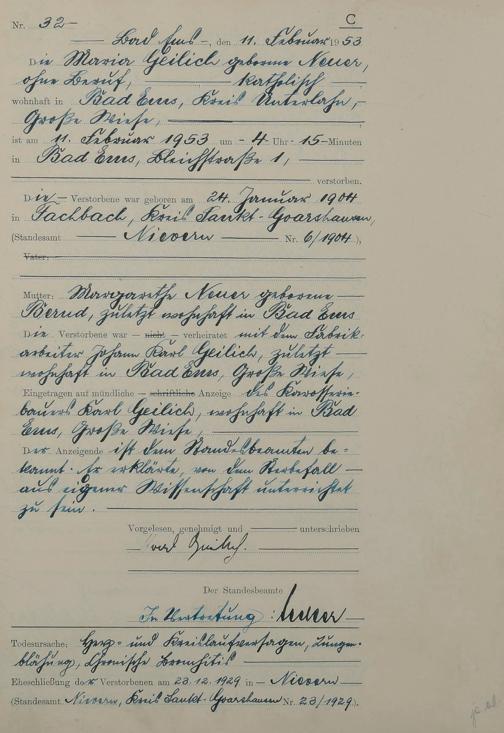 C
Nr. 32
Bad Ems, den 11. Februar 1953
Die Maria Geilich geborene Neuer,
ohne Beruf, katholisch
wohnhaft in Bad Ems, Kreis Unterlahn,
Große Wiese,
ist am 11. Februar 1953 um 4 Uhr 15 Minuten
in Bad Ems, Bleichstraße 1,
verstorben.
Die Verstorbene war geboren am 24. Januar 1904
in Fachbach, Kreis Sankt-Goarshausen,
(Standesamt Nievern Nr. 6/1904),
Vater:
Mutter: Margarethe Neuer geborene
Bernd, zuletzt wohnhaft in Bad Ems
Die Verstorbene war - nicht - verheiratet mit dem Fabrik-
arbeiter Johann Karl Geilich, zuletzt
wohnhaft in Bad Ems, Große Wiese,
Eingetragen auf mündliche - schriftliche Anzeige des Karosserie-
bauers Karl Geilich, wohnhaft in Bad
Ems, Große Wiese,
Der Anzeigende ist dem Standesbeamten be-
kannt. Er erklärte, von dem Sterbefall
aus eigener Wissenschaft unterrichtet
zu sein.
Vorgelesen, genehmigt und unterschrieben
Der Standesbeamte
In Vertretung:
Todesursache: Herz- und Kreislaufversagen, Lungen-
blähung, chronische Bronchitis
Eheschließung der Verstorbenen am 23.12.1929 in Nievern
(Standesamt Nievern, Kreis Sankt-Goarshausen Nr. 23/1929).